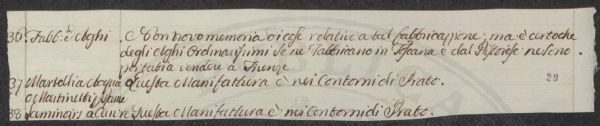 36. Fabb: è Aghi. Non trovo memoria o cose relative a tal fabbricazione; ma è certo che
degli Aghi Ordinarissimi se ne Fabbricano in Toscana è dal Pistoiese ne sono
portati a vendere a Firenze
37 Martelli a Acqua questa Manifattura è nei Contorni di Prato. 29
o Martinetti
38 Laminoirs a cuivre questa Manifattura è nei Contorni di Prato.